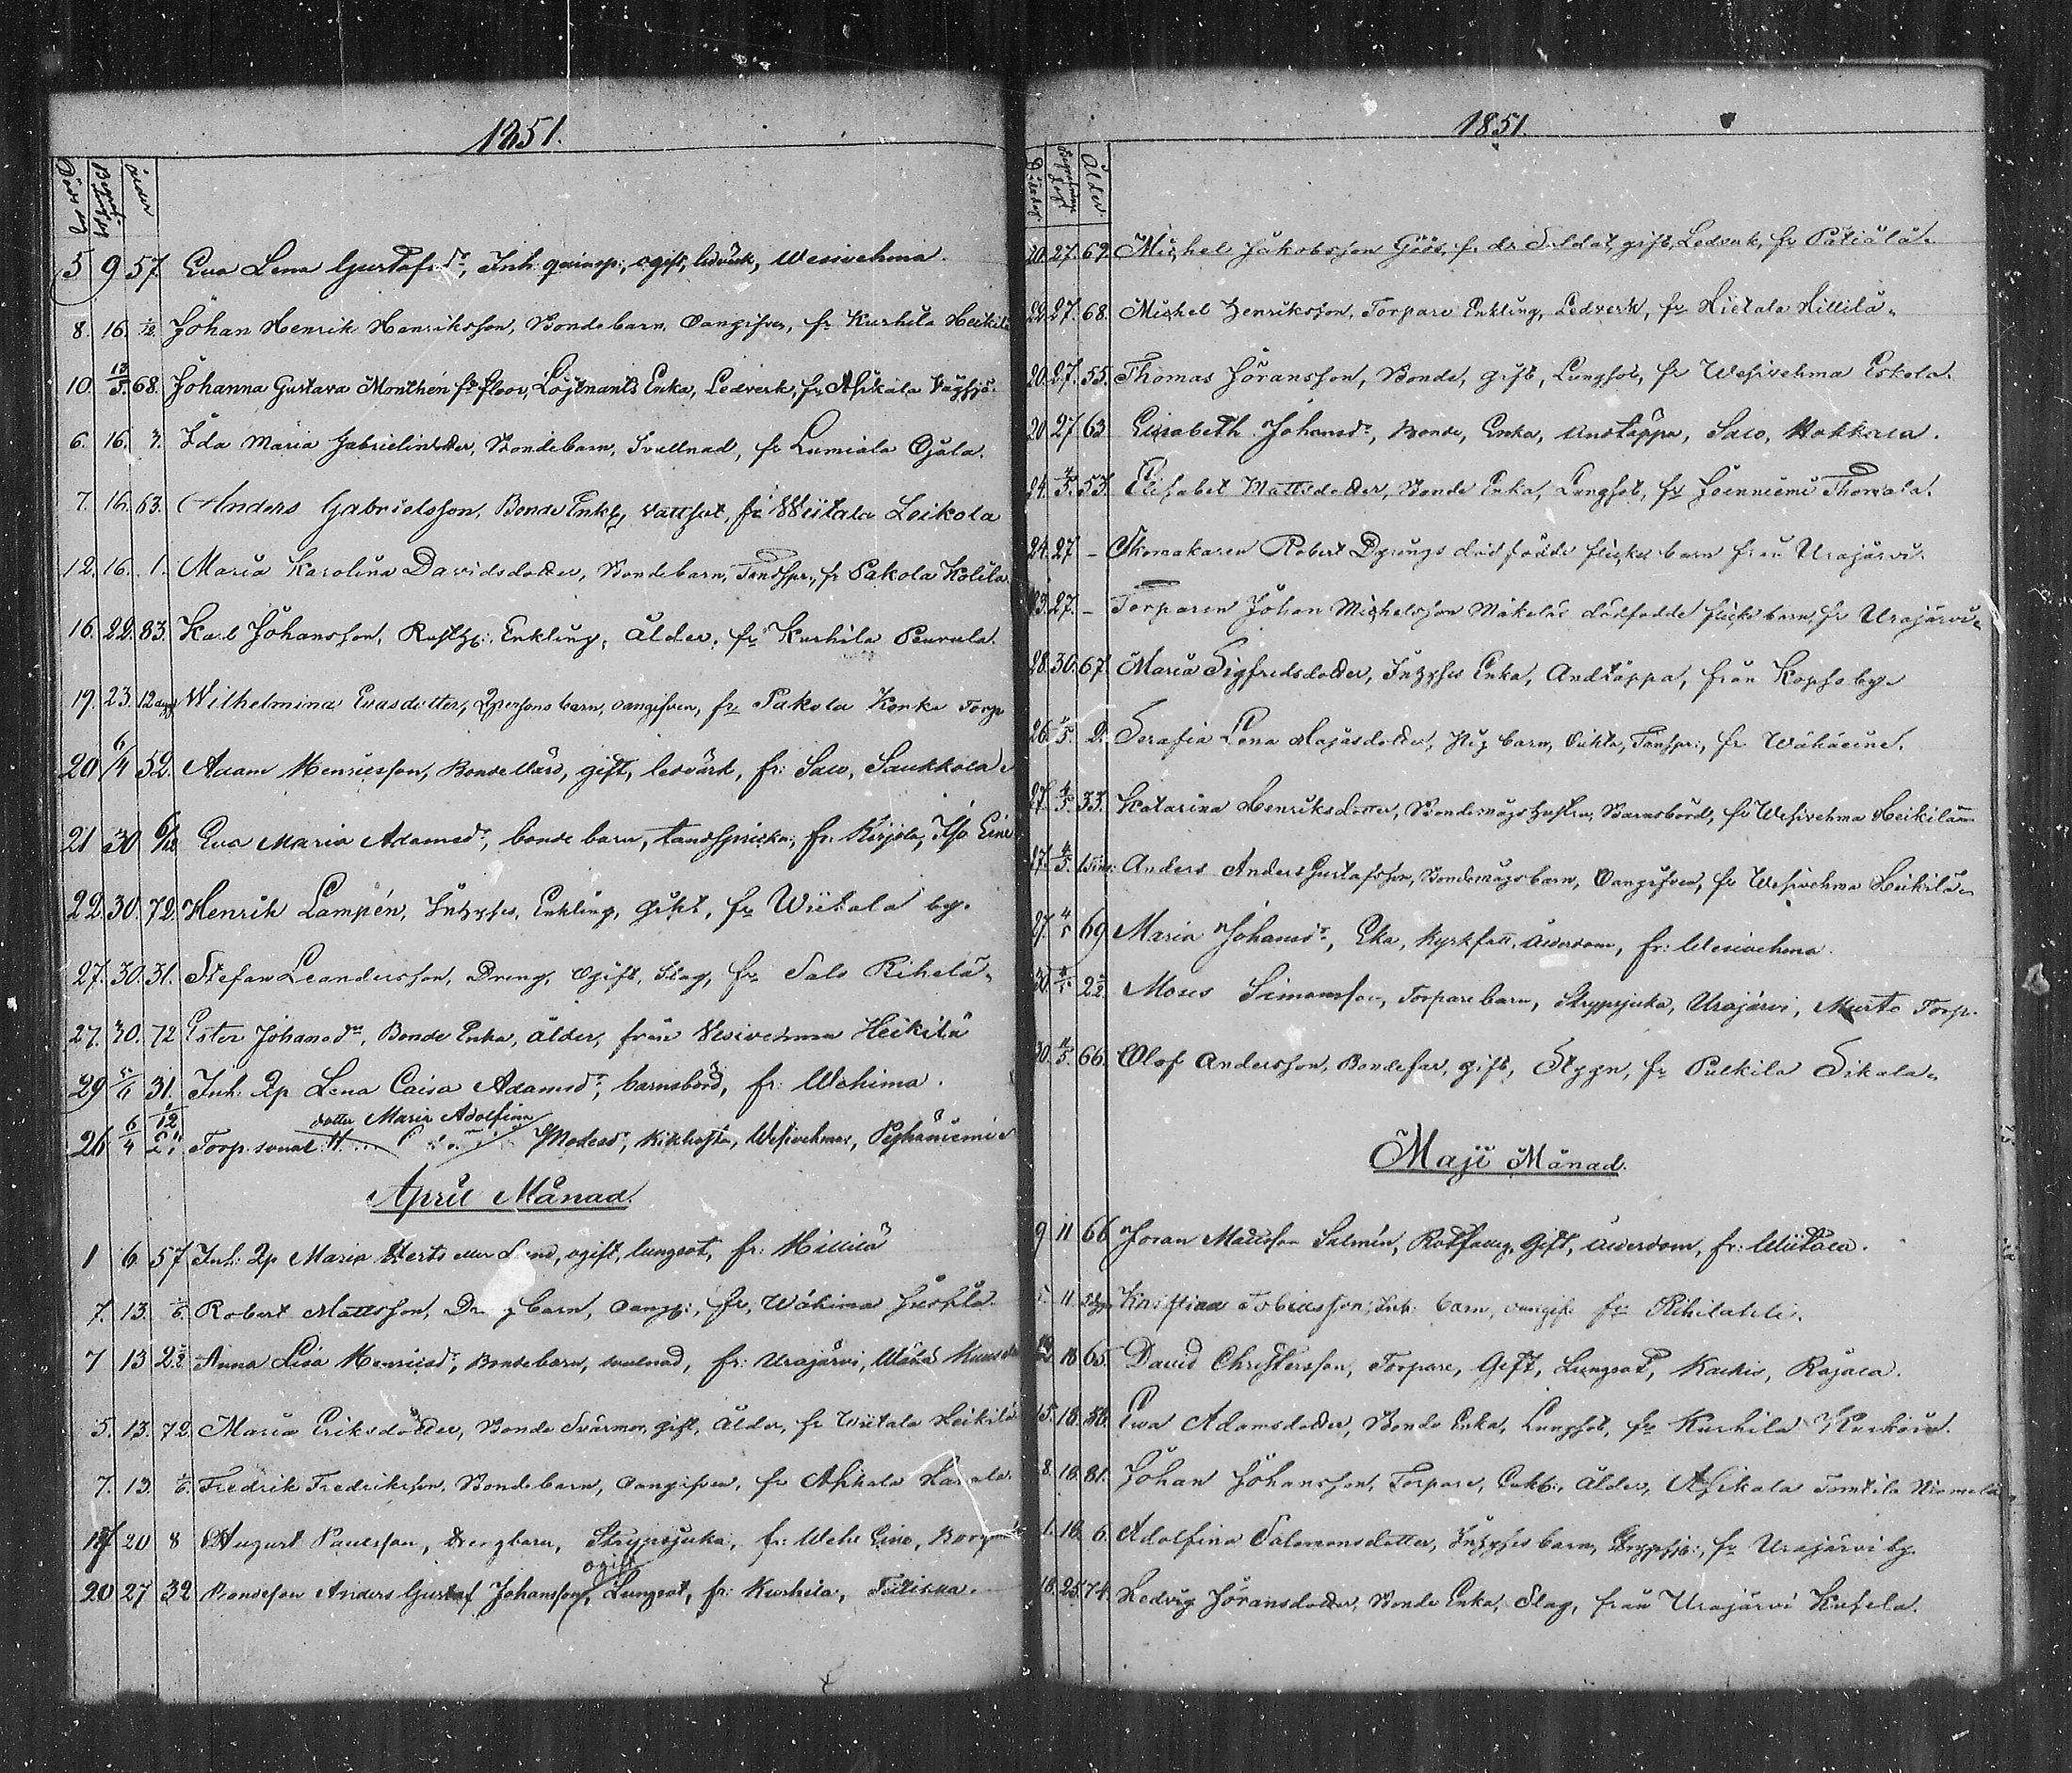 1851.
5 9 57 Eva Lena Gustafsdr, Inh. qvinsp:, ogift, ledvärk, Wesivehma.
8. 16. 1/12. Johan Henrik Henriksson, Bondebarn, Oangifven, fr Kurhila Heikilä
10. 13/5. 68. Johanna Gustava Monthén, Löjtnants Enka, Ledverk, fr Asikala
6. 16. 3. Ida Maria Gabrielsdotter, Bondebarn, Svullnad, fr Lumiala Ojala.
7. 16. 63. Anders Gabrielsson, Bonde Enkl, Vattsot, fr Wiitala Leikola
12. 16. 1. Maria Karolina Davidsdotter, Bondebarn, Tandspr., fr Pakola Kolila
16. 22. 83. Karl Johansson, Enkling, Ålder, fr Kurhila Peurula.
19. 23. 12 dag Wilhelmina Evasdotter, Qpersons barn, oangifven, fr Pakola Torp
20 6/4 52. Adam Henricsson, Bonde, gift, ledvärk, fr: Salo, Saukkola
21 30 6/12 Eva Maria Adamsdr, bonde barn, tandspricka, fr. Kirjola,
22. 30. 72. Henrik Lampén, Inhyses, Enkling, Gikt, fr Wiitala by.
27. 30. 31. Stefan Leandersson, Dreng, Ogift, Slag, fr Salo Rihelä
27. 30. 72 Ester Johansdr, Bonde Enka, ålder, från Vesivehma Heikilä
29 6/4 31. Inh. Qp Lena Caisa Adamsdr, barnsbörd, fr: Wehima.
dotter Maria Adolfina
26 6/4 Torp. Modesdr, Kikhosta, Wesivehma, Pyhäniemi
April Månad.
1 6 57 Inh: Qp Maria Herts eller Lend, ogift, lungsot, fr: Hillilä
7. 13. 1/6. Robert Mattsson, barn, oangif:, fr, Wähima
7 13 2 1/2 Anna Lisa Henricsdr, Bondebarn, svulnad, fr: Urajärvi,
5. 13. 72. Maria Eriksdotter, Bonde Svärmor, gift, Ålder, fr Wiitala Heikilä
7. 13. 1/6. Fredrik Fredriksson, Bondebarn, Oangifven, fr Asikala
17 20 8 August Paulsson, drengbarn, Strypsjuka, fr:
ogift
20 27 32 Bondeson Anders Gustaf Johansson, Lungsot, fr: Kurhila,
1851.
Dödsdag Begrafnings dag Ålder.
20. 27. 69. Michel Jakobsson Göös, f. d. Soldat, gift, Ledverk, fr Pätiälä.
22. 27. 68. Michel Henriksson, Torpare Enkling, Ledverk, fr Hietala Hillilä.
20. 27. 55. Thomas Jöransson, Bonde, gift, Lungsot, fr Wesivehma Eskola.
20 27 63 Elisabeth Johansdr, Bonde, Enka, Andtäppa, Salo, Hokkala.
24. 4/5. 53. Elisabet Mattsdotter, Bonde Enka, Lungsot, fr
24. 27 – Robert Dyrings dödfödde flickebarn från Urajärvi.
23. 27. – Torparen Johan Michelsson Mäkeläs dödfödde flickebarn, fr Urajärvi.
28. 30. 67. Maria Sigfredsdotter, Inhyses Enka, Andtäppa, från Kopso by.
26. 4/5. 2. Serafia Lena Majasdotter, barn, Oäkta, Tandspr:, fr Wähäeine.
27. 4/5. 33. Katarina Henriksdotter, Bondemågs hustru, Barnsbörd, fr Wesivehma Heikilä
27. 4/5. Anders Anders Gustafsson, Bondemågs barn, Oangifven, fr Wesivehma Heikilä.
27. 4/5 69 Maria Johansdr, Eka, Kyrkfatt., ålderdom, fr: Wesivehma.
30. 4/5 2 1/2 Moses Simonsson, Torpare barn, Strypsjuka, Urajärvi, Murto Torp.
30. 4/5. 66. Olof Andersson, Bondefar, gift, Styng, fr Pulkila Sikala.
Maji Månad.
9 11 66 Joran Matisson Salmén, Rotfattig, Gift, ålderdom, fr: Wiitala.
5. 11 Kristina Tobiasson, Inh: barn, oangif. fr
18 65. David Christersson, Torpare, Gift, Lungsot, Kalkis, Rajala.
15. 18. 58. Ewa Adamsdotter, Bonde Enka, Lungsot, fr Kurhila
8. 18. 81. Johan Johansson, Torpare, Enkl:, ålder, Asikala
1. 18. 6. Adolfina Salomonsdotter, Inhyses barn, Strypsj:, fr Urajärvi by.
18. 25. 74. Hedvig Jöransdotter, Bonde Enka, Slag, från Urajärvi